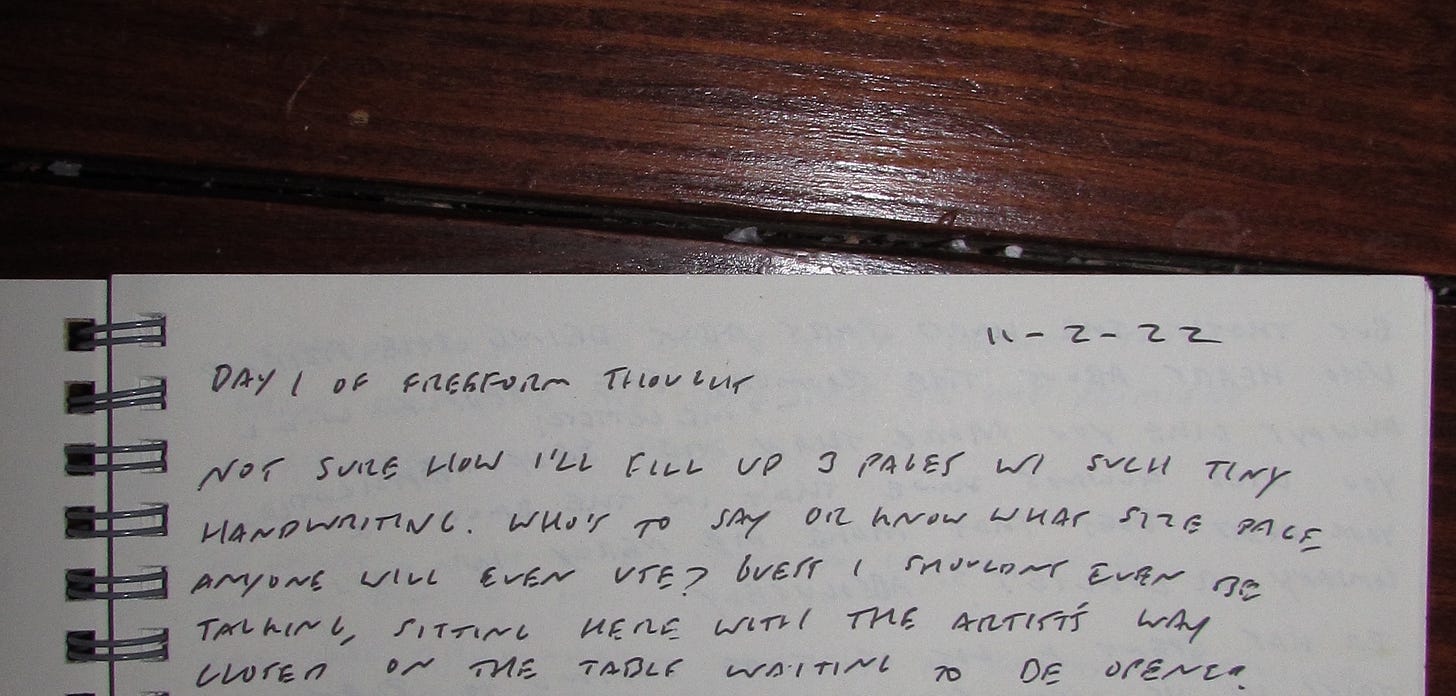 11-2-22
DAY 1 OF FREEFORM THOUGHT
NOT SURE HOW I'LL FILL UP 3 PAGES W/ SUCH TINY
HANDWRITING. WHO'S TO SAY OR KNOW WHAT SIZE PAGE
ANYONE WILL EVEN USE? GUESS I SHOULDN'T EVEN BE
TALKING, SITTING HERE WITH THE ARTIST'S WAY
CLOSED ON THE TABLE WAITING TO BE OPENED.